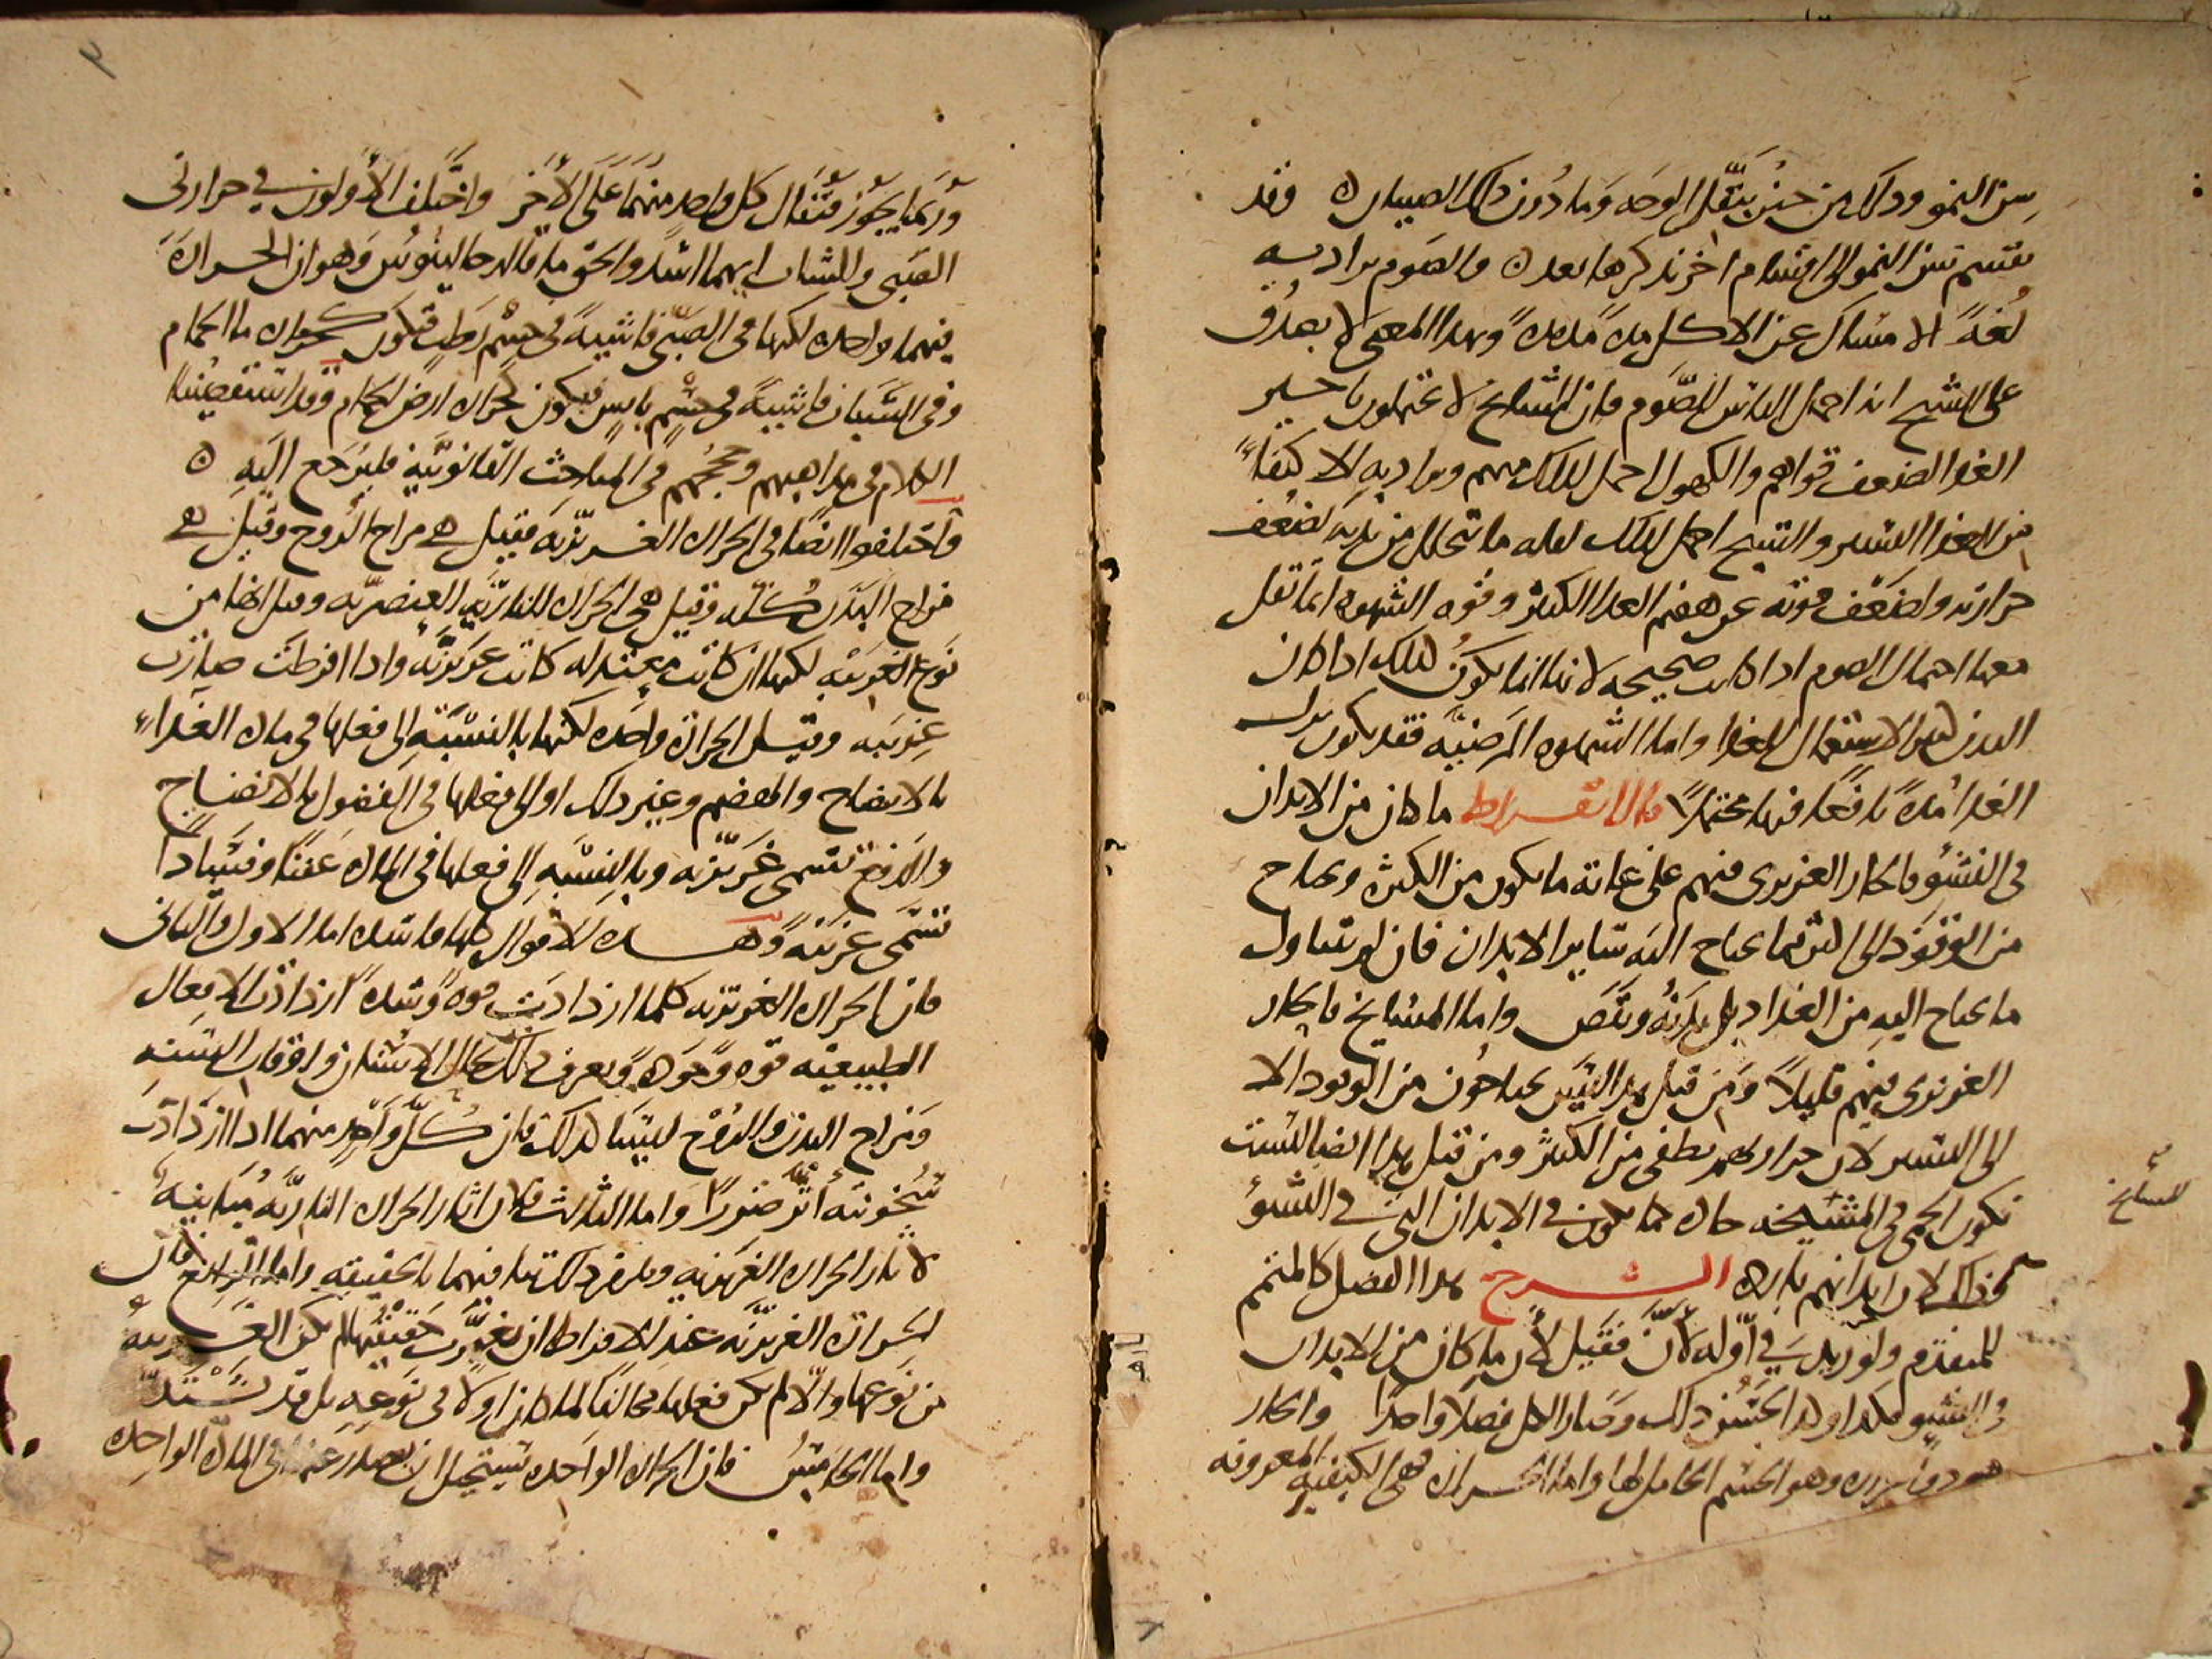 سن النمو وذلك من حين بتقل الوجه وما دون ذلك الصبيان وقد
تقسم سن النمو الى اقسام اخر نذكرها بعد والصوم يراد به
لغة الامساك عن الاكل مدة مديدة وبهذا المعنى لا يصدق
على الشيخ انه احمل الناس للصوم فان المشايخ لا يحتملون تاخير
الغذا لضعف قواهم والكهول احمل لذلك منهم ويراد به الاكتفاء
من الغذا اليسير والشيخ احمل لذلك لقلة ما يتحلل من بدنه لضعف
حرارته ولضعف قوته عن هضم الغذا الكثير وقوة الشهوة انما تقل
معها احتمال الصوم اذا كانت صحيحة لانها انما يكون لذلك اذا كان
البدن الاستعمال للغذا واما الشهوة المرضية فقد يكون ترك
الغذا مدة نافعا فيها محتملا قال ابقراط ما كان من الابدان
في النشو فالحار الغريزي فيهم على غاية ما يكون من الكثرة ويحتاج
من الوقود الى اكثر مما يحتاج اليه سائر الابدان فان لم يتناول
ما يحتاج اليه من الغذا ذبل بدنه ونقص واما المشايخ فالحار
الغريزي فيهم قليلا ومن قبل هذا ليس يحتاجون من الوقود الا
الى اليسير لان حرارتهم تطفى من الكثير ومن قبل هذا ايضا ليست
تكون الحمى في المشيخة حادة كما تكون في الابدان التي في النشوء
وذلك لان ابدانهم باردة الشرح هذا الفصل كالمتمم
للمتقدم ولو زيد في اوله لان فقيل لان ما كان من الابدان
في النشو هكذا لحسن ذلك وصار الكل فصلا واحدا والحار
هو ذو حرارة وهو الجسم الحامل لها واما الحرارة فهي الكيفية المعروفة
للمشايخ
وربما يجوز فتقال كل واحد منهما على الاخر واختلف الاولون في حرارتي
الصبي والشاب ايهما اشد والحق ما قاله جالينوس وهو ان الحرارة
فيهما واحدة لكنها في الصبي فاشية في جسم رطب فتكون كحرارة ما الحمام
وفي الشبان فاشية في جسم يابس فيكون كحرارة ارض الحمام وقد استقصينا
الكلام في مذاهبهم وحججهم في المباحث القانونية فليرجع اليه
واختلفوا ايضا في الحرارة الغريزية فقيل هي مزاج الروح وقيل هي
مزاج البدن كله وقيل هي الحرارة النارية العنصرية وقيل انها من
نوع الغريبة لكنها ان كانت معتدلة كانت غريزية واذا افرطت صارت
غريبة وقيل الحرارة واحدة لكنها بالنسبة الى فعلها في مادة الغذاء
بالانضاج والهضم وغير ذلك او الى فعلها في الفضول بالانضاج
والدفع تسمى غريزية وبالنسبة الى فعلها في المادة عفنا وفسادا
تسمى غريبة وهذه الاقوال كلها فاسدة اما الاول والثاني
فان الحرارة الغريزية كلما ازدادت قوة وشدة ازدادت الافعال
الطبيعية قوة وجودة ويعرف ذلك بحال الانسان في اوقات السنة
ومزاج البدن والروح ليسا كذلك فان كل واحد منهما اذا ازدادت
سخونته اثر ضررا واما الثالث فلان اثار الحرارة النارية مباينة
لاثار الحرارة الغريزية ويلزم ذلك تباينهما بالحقيقة واما الرابع فلان
الحرارة الغريزية عند الافراط ان تغيرت حقيقتها لم يكن الغريبة
من نوعها والا لم يكن فعلها مخالفا لما كان اولا في نوعه بل قد يشتد
واما الخامس فان الحرارة الواحدة يستحيل ان يصدر عنها في المادة الواحدة